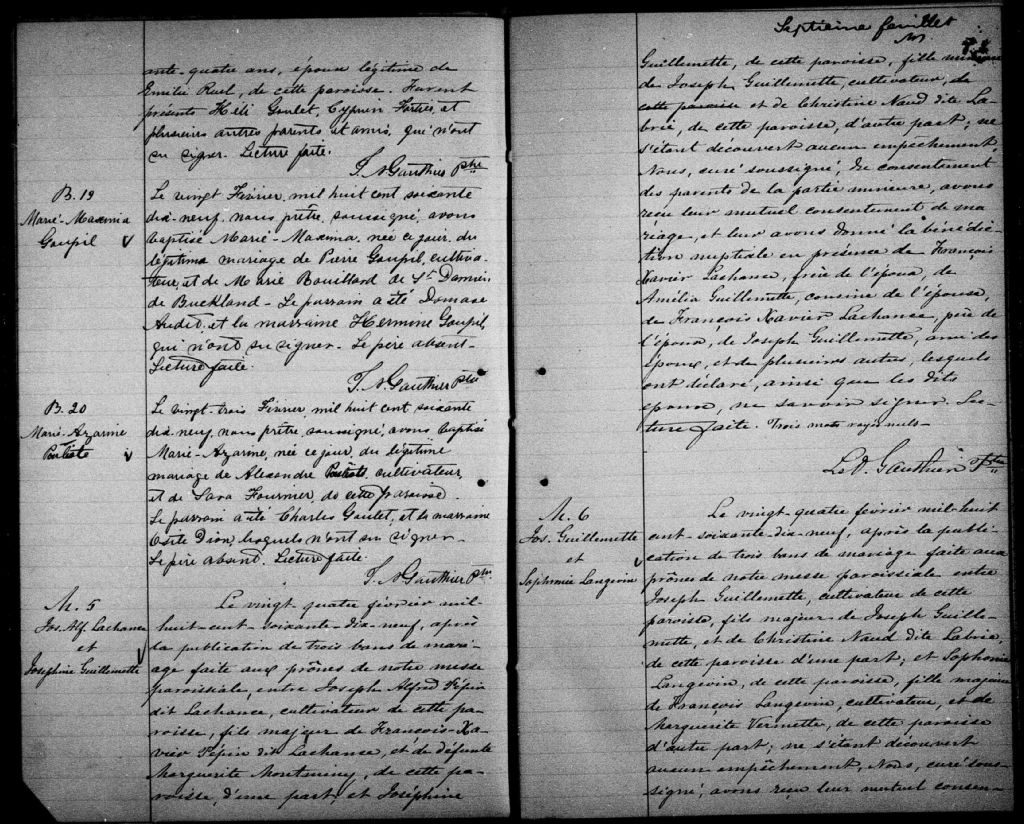 ante-quatre ans, époux légitime de
Emilie Ruel, de cette paroisse. Furent
présents Héli Goulet, Cyprien Fortier, et
plusieurs autres parents et amis, qui n'ont
su signer. Lecture faite.
Gauthier Ptre
B. 19
Marie-Maxima
Goupil
Le vingt Février, mil huit cent soixante
dix-neuf, nous prêtre, soussigné, avons
baptisé Marie-Maxima, née ce jour, du
légitime mariage de Pierre Goupil, cultiva-
teur, et de Marie Bouillard de St Damien
de Buckland - Le parrain a été Damase
Audet, et la marraine Hermine Goupil,
qui n'ont su signer - Le père absent -
Lecture faite.
Gauthier Ptre
B. 20
Marie-Azarine
Le vingt-trois Février, mil huit cent soixante
dix-neuf, nous prêtre, soussigné, avons baptisé
Marie-Azarine, née ce jour, du légitime
mariage de Alexandre cultivateur,
et de Sara Fournier, de cette paroisse.
Le parrain a été Charles Goulet, et la marraine
Dion, lesquels n'ont su signer -
Le père absent. Lecture faite.
Gauthier Ptre
M. 5
Jos. Alf. Lachance
et
Joséphine Guillemette
Le vingt quatre février mil-
huit-cent-soixante-dix-neuf, après
la publication de trois bans de mari-
age faite aux prônes de notre messe
paroissiale, entre Joseph Alfred Pépin
dit Lachance, cultivateur de cette pa-
roisse, fils majeur de François-Xa-
vier Pépin dit Lachance, et de défunte
Marguerite Montminy, de cette pa-
roisse, d'une part, et Joséphine
Septième feuillet
Guillemette, de cette paroisse, fille mineure
de Joseph Guillemette, cultivateur, de
cette paroisse et de Christine Naud dite La-
brie, de cette paroisse, d'autre part; ne
s'étant découvert aucun empêchement,
Nous, curé soussigné, du consentement
des parents de la partie mineure, avons
reçu leur mutuel consentement de ma-
riage, et leur avons donné la bénédic-
tion nuptiale en présence de François
Xavier Lachance, frère de l'époux, de
Amélia Guillemette, cousine de l'épouse,
de François Xavier Lachance, père de
l'époux, de Joseph Guillemette, ami des
époux, et de plusieurs autres, lesquels
ont déclaré, ainsi que les dits
époux, ne savoir signer. Lec-
ture faite. Trois mots rayés nuls -
Gauthier Ptre
M. 6
Jos. Guillemette
et
Sophronie Langevin
Le vingt-quatre février mil-huit
cent-soixante-dix-neuf, après la publi-
cation de trois bans de mariage faite aux
prônes de notre messe paroissiale entre
Joseph Guillemette, cultivateur de cette
paroisse, fils majeur de Joseph Guille-
mette, et de Christine Naud dite Labrie,
de cette paroisse d'une part; et Sophronie
Langevin, de cette paroisse, fille majeure
de François Langevin, cultivateur, et de
Marguerite Vermette, de cette paroisse
d'autre part; ne s'étant découvert
aucun empêchement, Nous, curé sous-
signé, avons reçu leur mutuel consen-